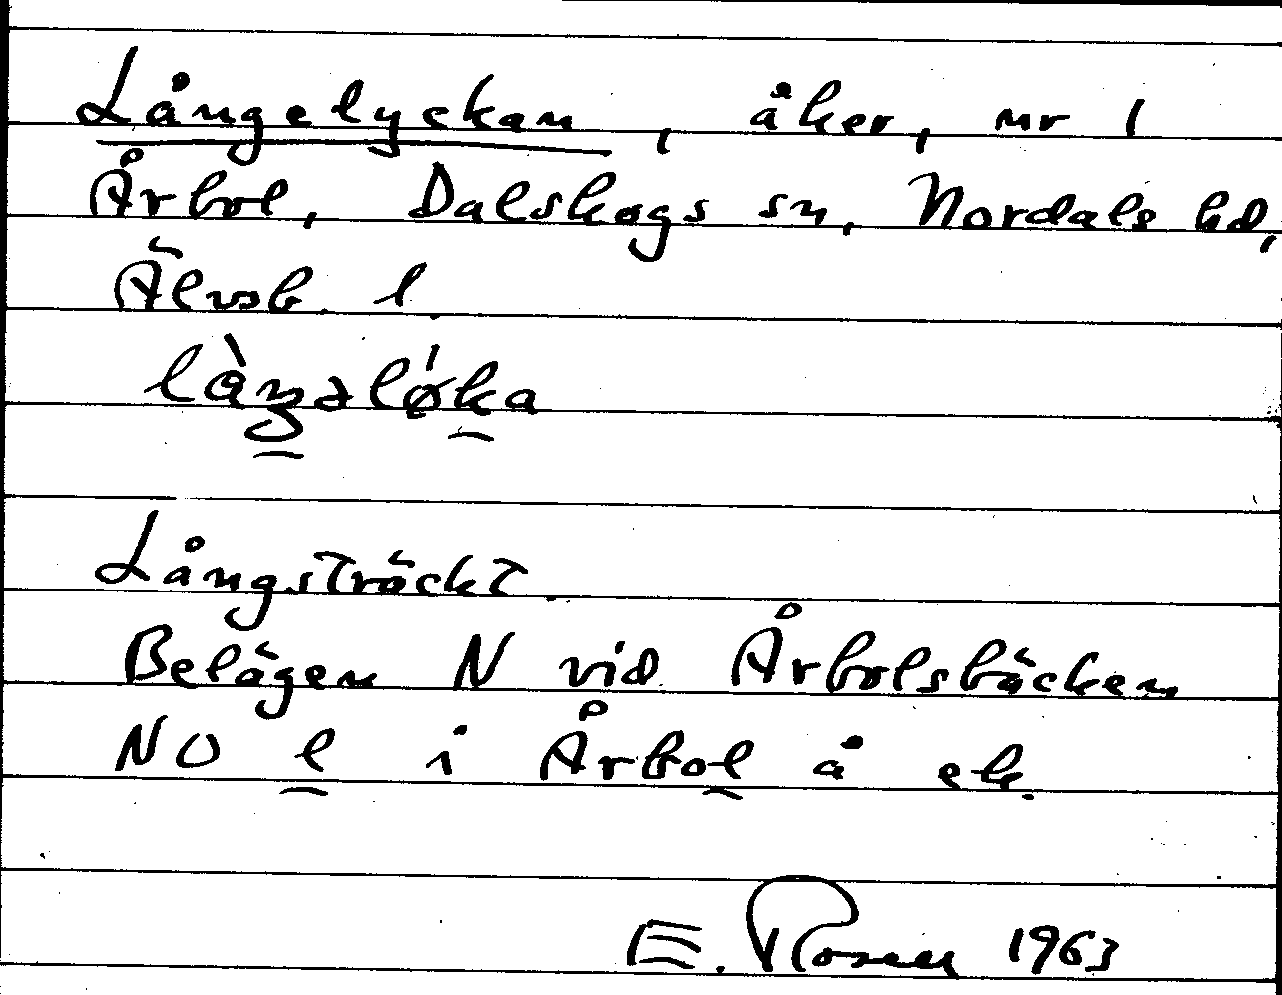 Långelyckan, åker, nr 1
Årbol, Dalskogs sn, Nordals hd,
Älvsb. l.
làŋəlø̀ka
Långsträckt.
Belägen N vid Årbolsbäcken
NO l i Årbol å ek.
E. 1963